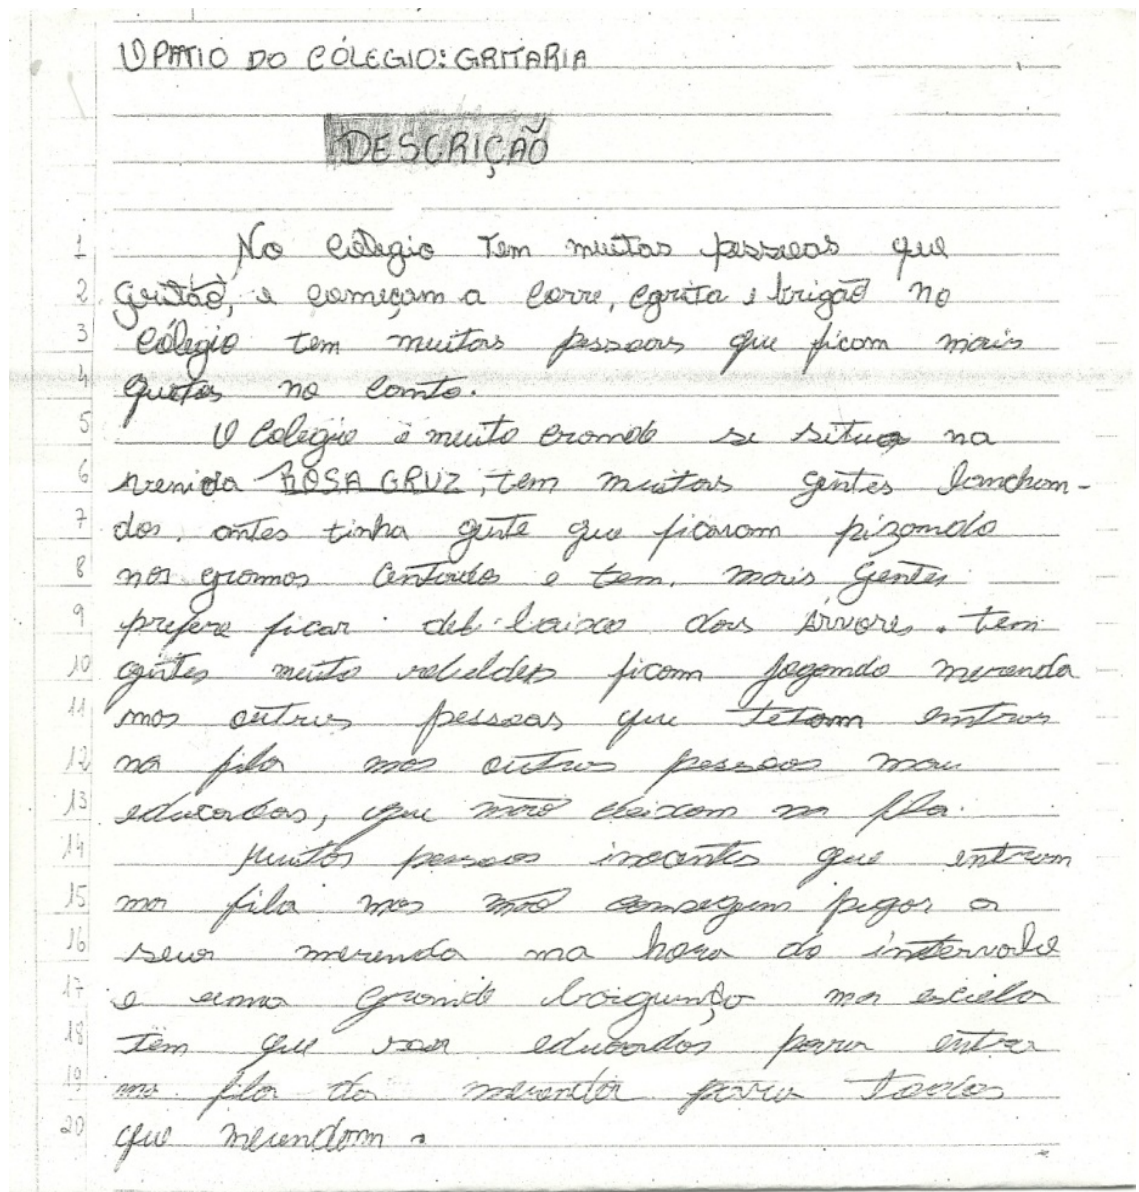 O PATIO DO CÓLEGIO: GRITARIA
DESCRIÇÃO
1 No cólegio tem muitas pessoas que
2 Gritão, e começam a corre, egrita e brigão no
3 cólegio tem muitas pessoas que ficam mais
4 quetas no canto.
5 O colegio e muito grande se situa na
6 avenida ROSA GRUZ, tem muitas gentes lanchan-
7 dos. antes tinha gente que ficaram pizando
8 nas gramas e tem. mais gentes
9 prefere ficar debbaixo das árvores. tem
10 gentes muito rebeldes ficam jogando merenda
11 nas outras pessoas que tetam entrar
12 na fila mas outras pessoas mau
13 educadas, que não deixam na fila.
14 Muitas pessoas inocentes que entram
15 na fila mas não conseguem pegar a
16 seua merenda na hora do intervalo
17 e uma grande baigunço na escola
18 tem que educados para entra
19 na fila da merenda para
20 que merendam.